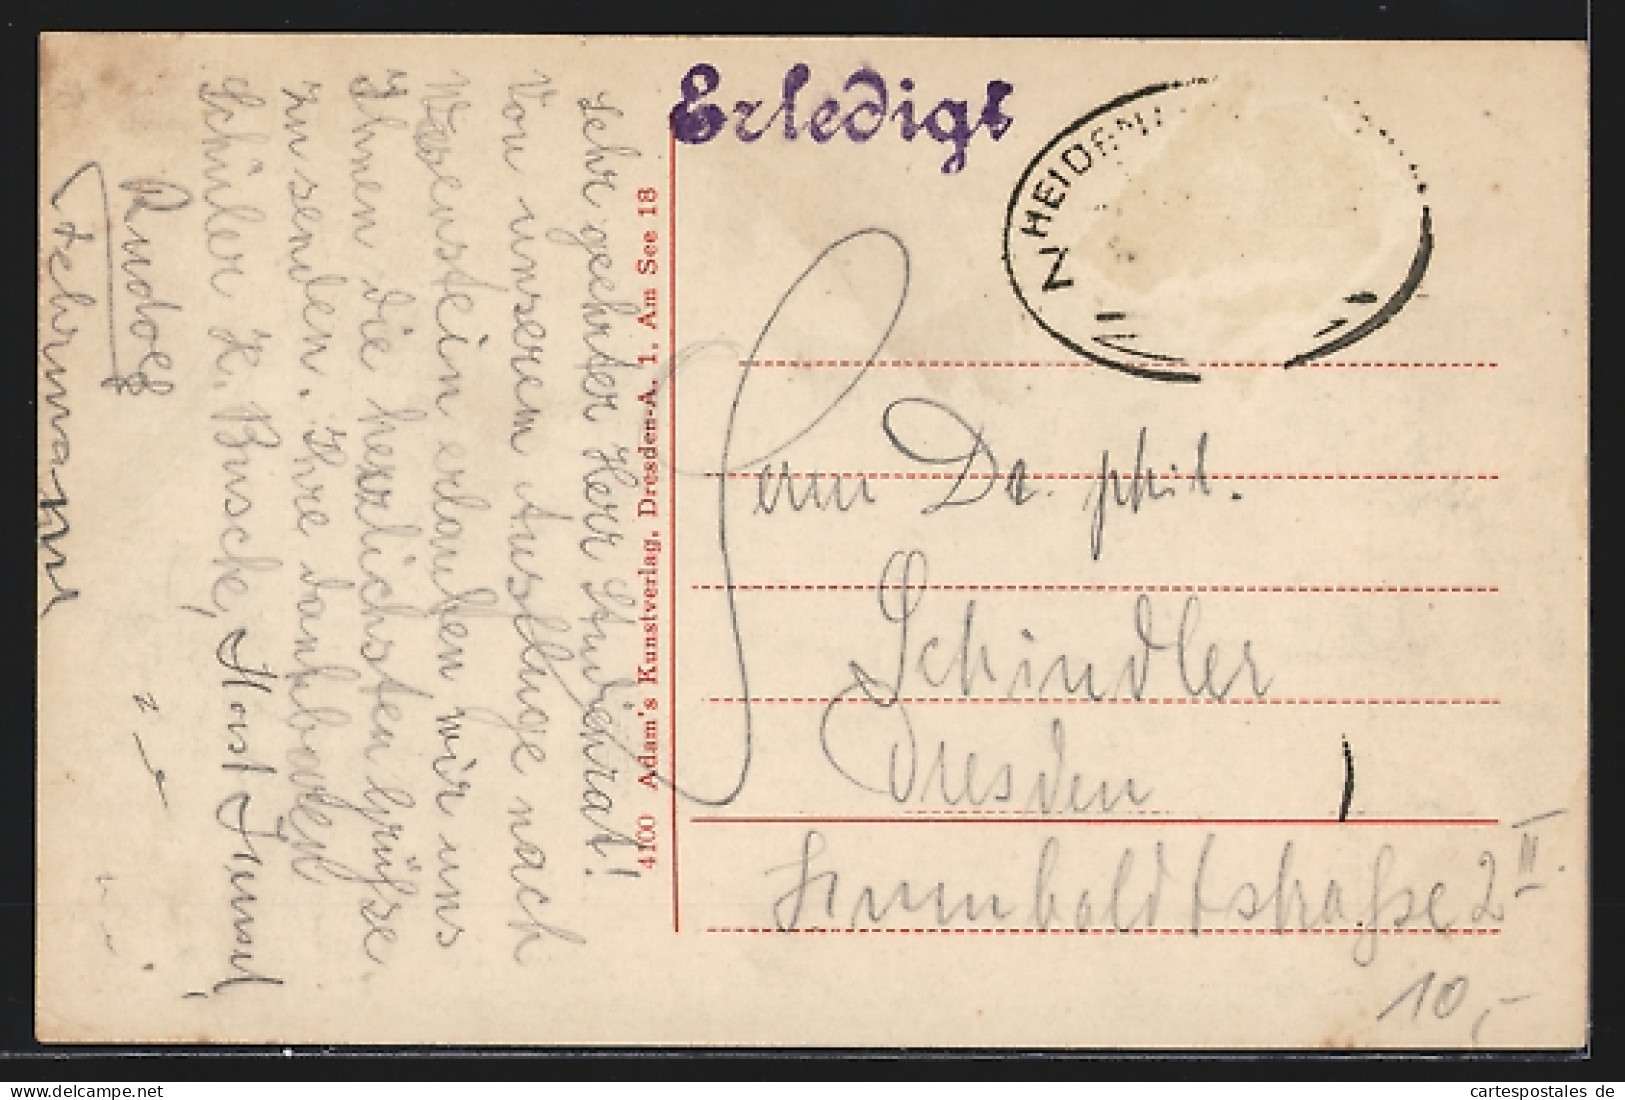 Erledigt
HEIDEN
Sehr geehrter Herr Studienrat!
Von unserem Ausfluge nach
Wesenstein erlauben wir uns
Ihnen die herzlichsten Grüße
zusenden. Ihre dankbaren
Schüler H. Buscke, Horst
Rudolf
Fehrmann
4100 Adam's Kunstverlag, Dresden-A. 1, Am See 18
Herrn Dr. phil.
Schindler
Dresden
Humboldtstraße 2 III.
10,-
cartespostales de